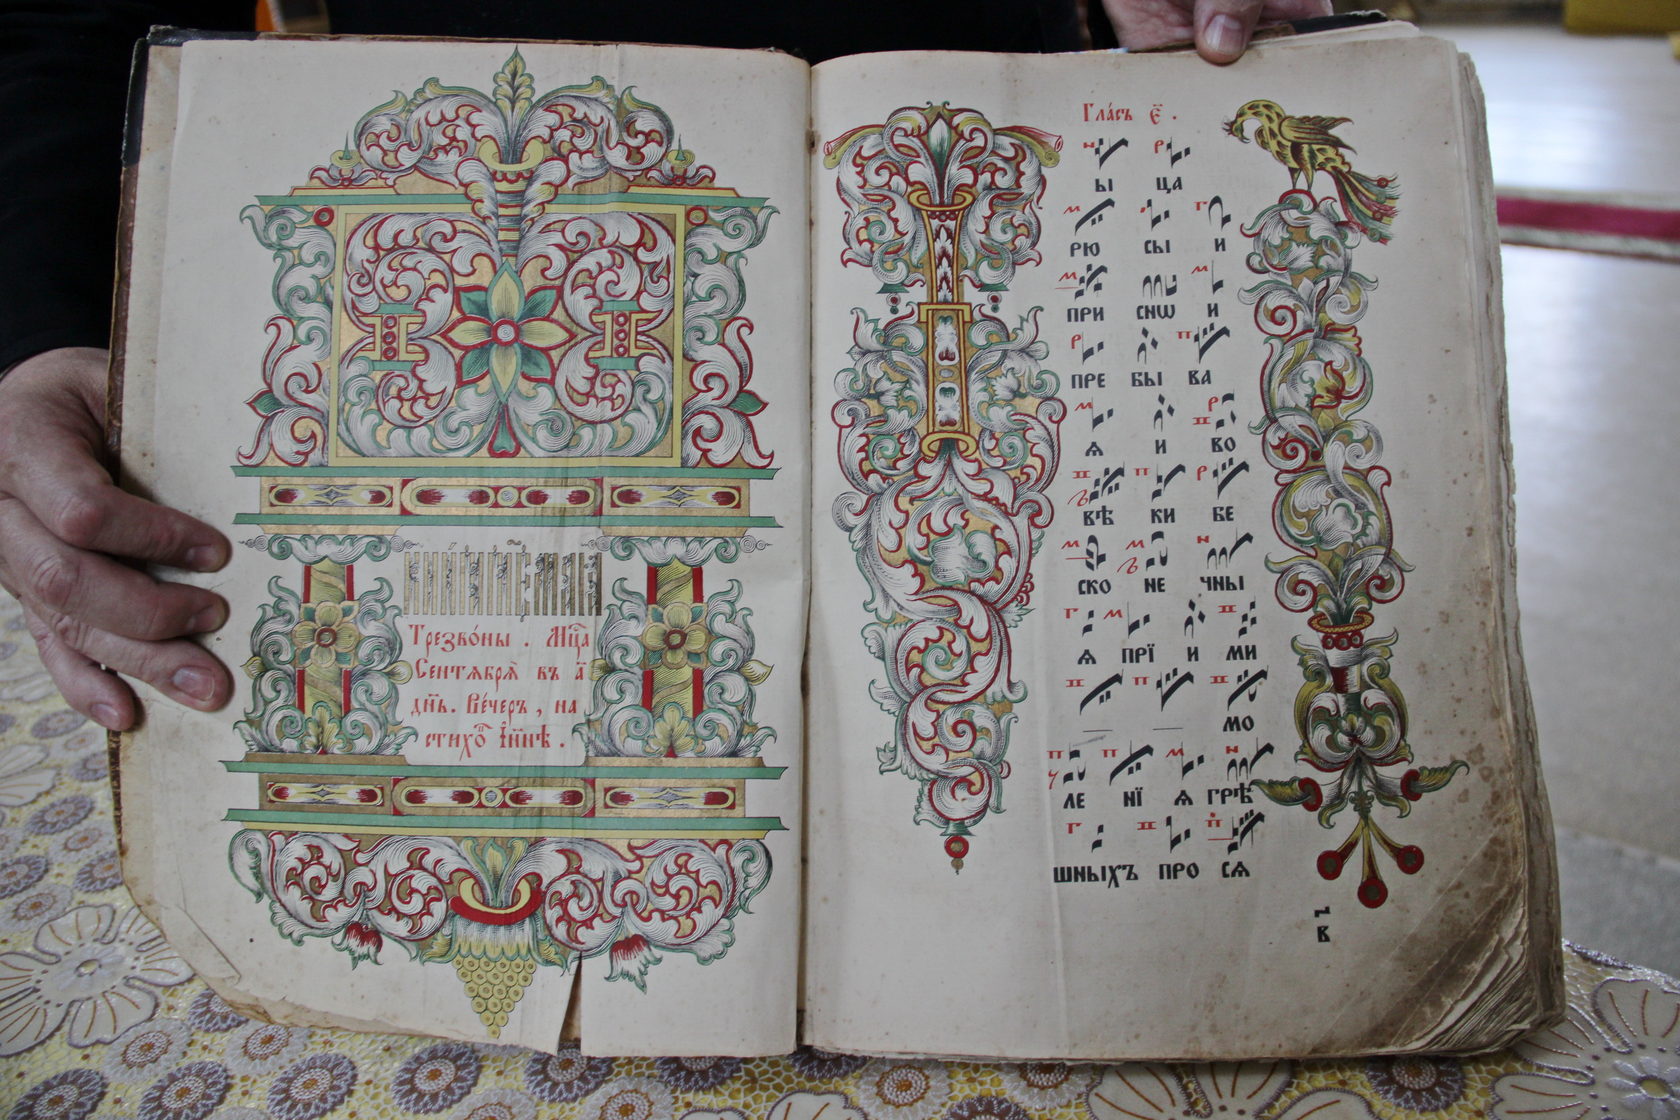 Трезво́ны . Мц̑а
Сентября̀ въ а҃
дн҃ь. Ве́черъ , на
стихо̑ ӥ҆н҃ѣ .
Гла́съ є҃ .
ы ца
рю сы и
при снѡ и
пре бы ва
ѧ и во
вѣ ки бе
ско не чны
ѧ прї и ми
мо
ле нї ѧ грѣ
шныхъ про сѧ
в